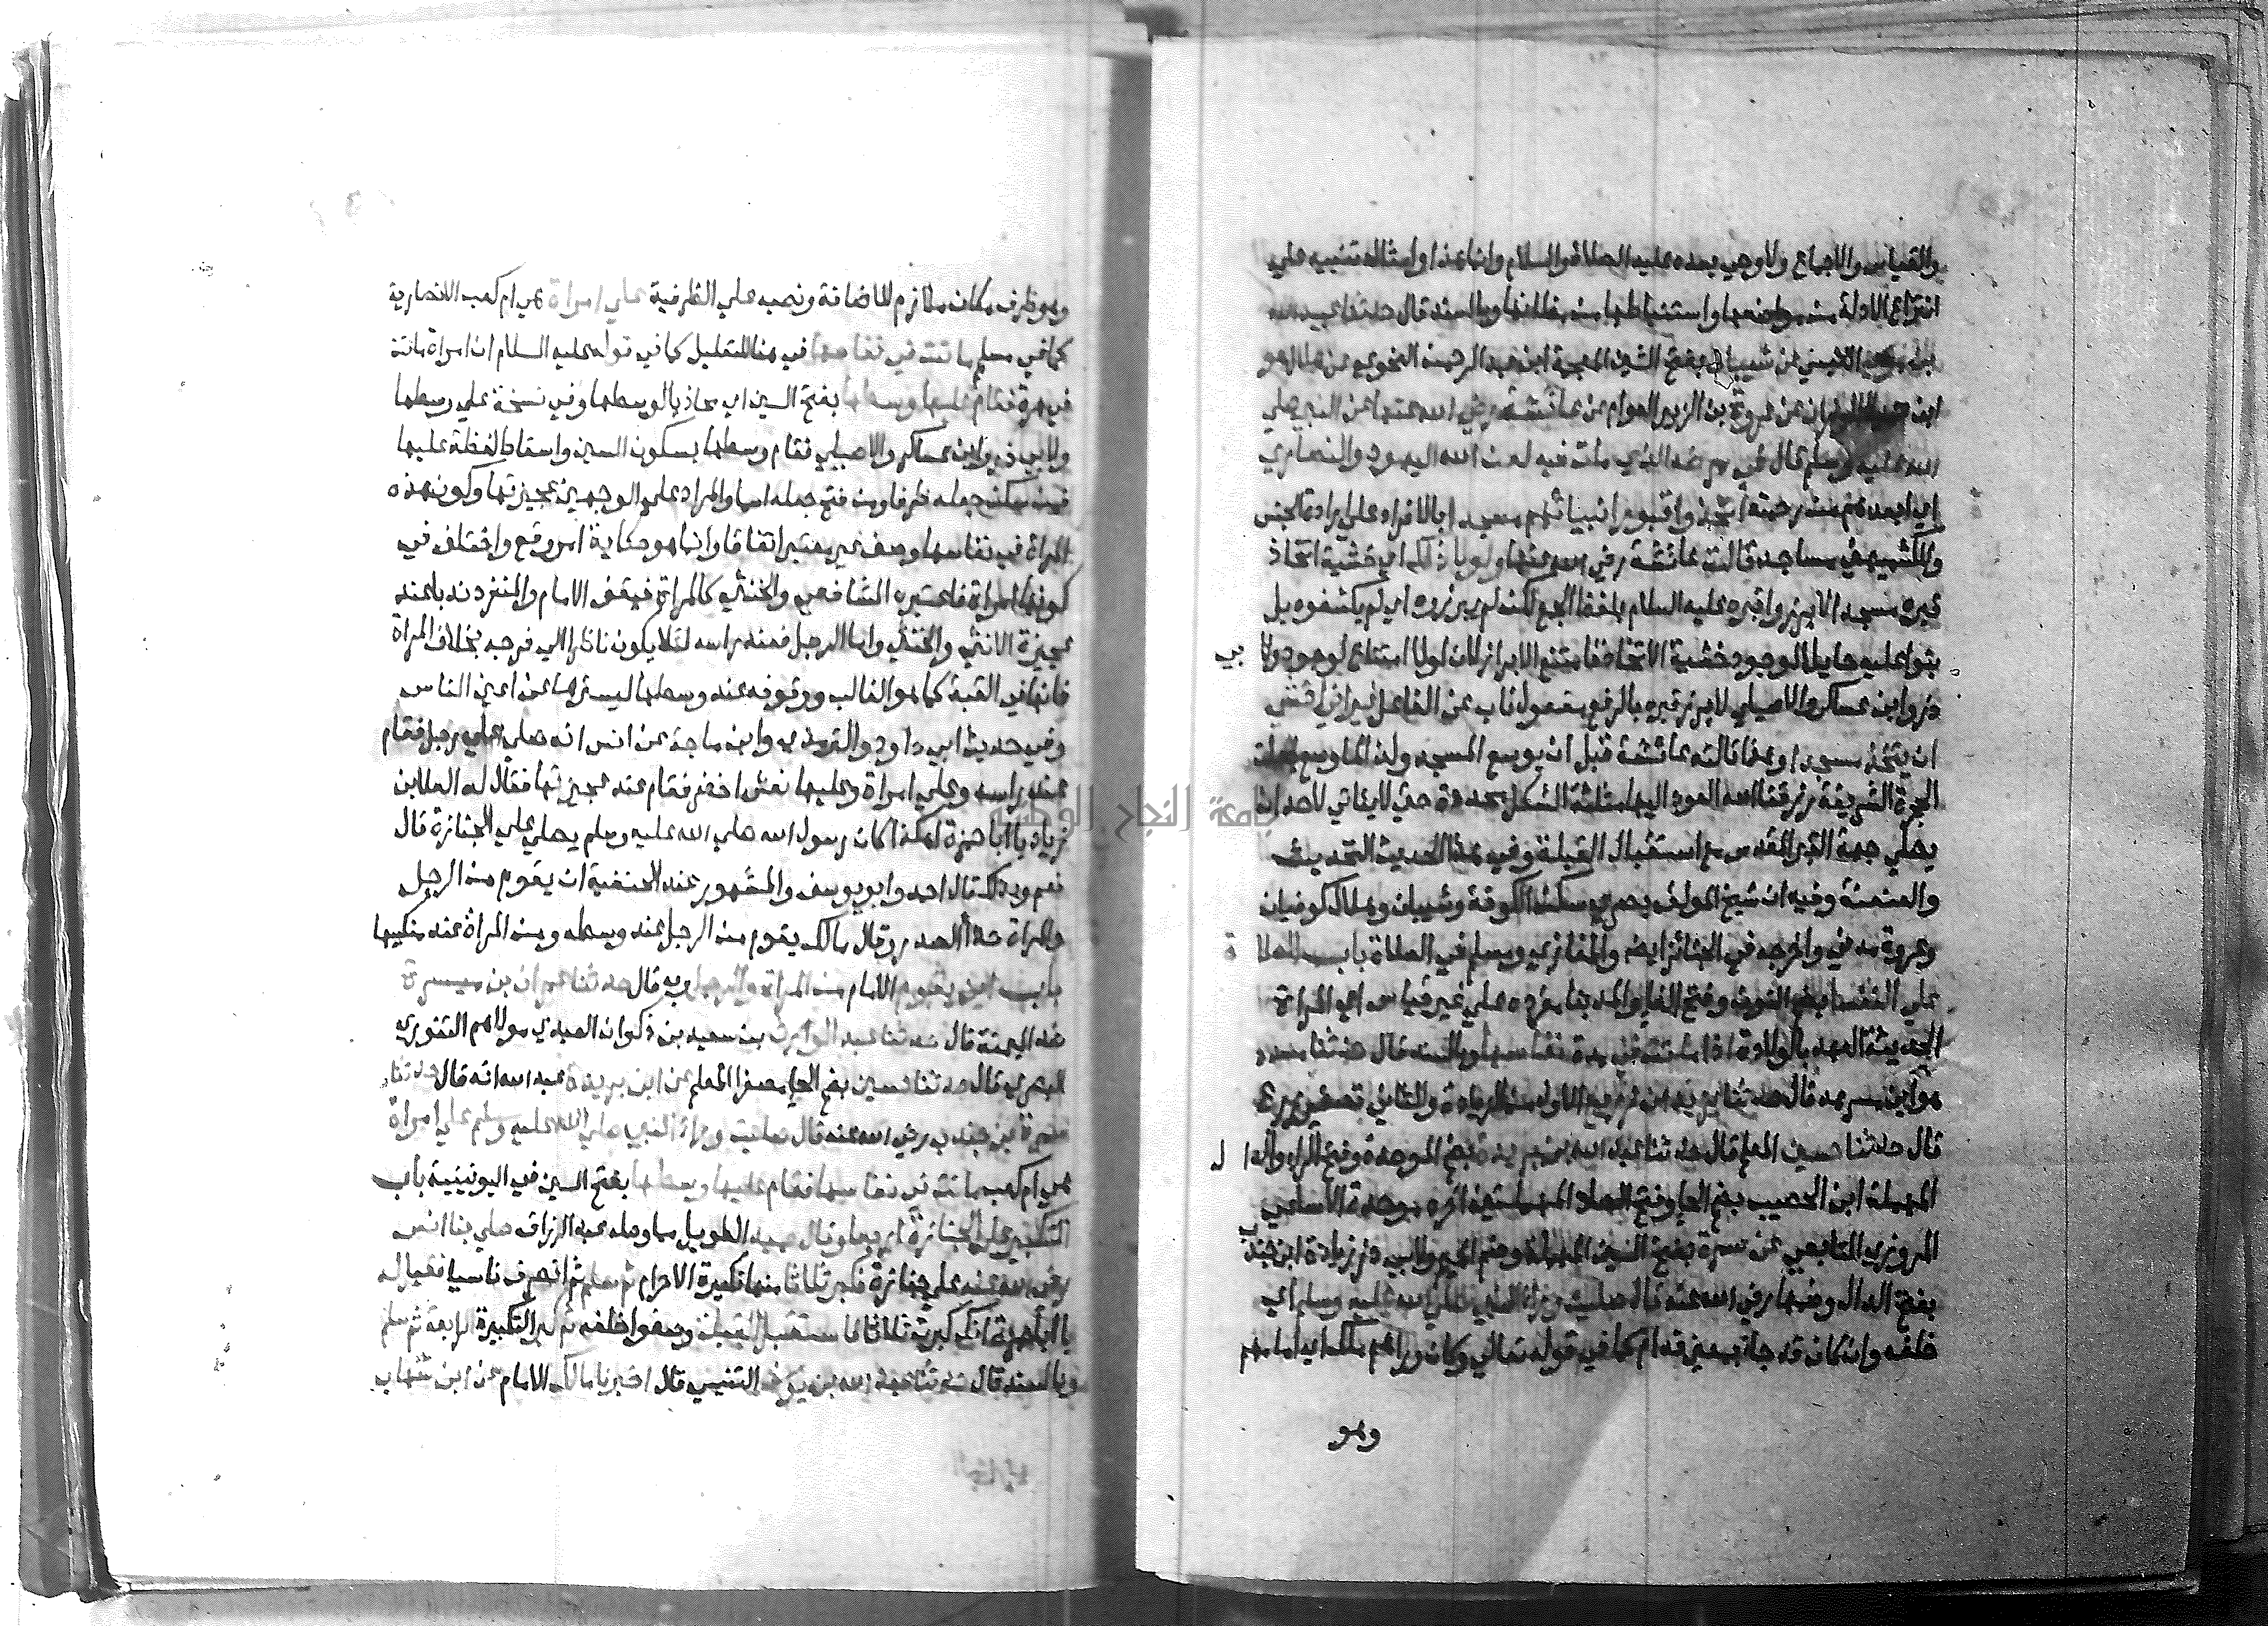 والقياس والاجماع ولا وحي بعده عليه الصلاة والسلام وانما هذا وامثاله تنبيه علي
انتزاع الادلة من مواضعها واستنباطها من مظانها وبالسند قال حدثنا عبيد الله
بن موسي العبسي عن شيبان بفتح الشين المعجمة ابن عبد الرحمن النحوي عن هلال هو
ابن حميد الوزان عن عروة بن الزبير العوام عن عائشة رضي الله عنها عن النبي صلي
الله عليه وسلم قال في مرضه الذي مات فيه لعن الله اليهود والنصاري
اي ابعدهم من رحمته اتخذوا قبور انبيائهم مسجدا بالافراد علي ارادة الجنس
وللكشميهني مساجد قالت عائشة رضي الله عنها ولولا ذلك اي خشية اتخاذ
قبره مسجدا لابرز وا قبره عليه السلام بلفظ الجمع لكن لم يبرزوه اي لم يكشفوه بل
بنوا عليه حايلا لوجود خشية الاتخاذ فامتنع الابراز لان لولا امتناع لوجود ولابي
ذر وابن عساكر والاصيلي لابرز قبره بالرفع مفعول ناب عن الفاعل غير اني اخشي
ان يتخذ مسجدا وهذا قالته عائشة قبل ان يوسع المسجد ولذا لما وسع جعلت
الحجرة الشريفة رزقنا الله العود اليها مثلثة الشكل محددة حتي لا يتاتي لاحد ان
يصلي جهة القبر المقدس مع استقبال القبلة وفي هذا الحديث التحديث
والعنعنة وفيه ان شيخ المولف بصري سكن الكوفة وشيبان وهلال كوفيان
وعروة مدني واخرجه في الجنائز ايضا والمغازي ومسلم في الصلاة باب الصلاة
علي النفسا بضم النون وفتح الفا والمد بنا مفرده علي غير قياس اي المراة
الحديثة العهد بالولادة اذا ماتت في مدة نفاسها وبالسند قال حدثنا مسدد
هو ابن مسرهد قال حدثنا يزيد بن زريع الاول من الزيادة والثاني تصغير زرع
قال حدثنا حسين المعلم قال حدثنا عبد الله بن بريدة بضم الموحدة وفتح الرا والدال
المهملة ابن الحصيب بضم الحا وفتح الصاد المهملتين اخره موحدة الاسلمي
المروزي التابعي عن سمرة بفتح السين المهملة وضم الميم ولابي ذر زيادة ابن جندب
بفتح الدال وضمها رضي الله عنه قال صليت وراء النبي صلي الله عليه وسلم اي
خلفه وان كان قد جاء بمعني قدام كما في قوله تعالي وكان وراءهم ملك اي امامهم
وهو
وهو ظرف مكان ملازم للاضافة ونصبه علي الظرفية علي امراة هي ام كعب الانصارية
كما في مسلم ماتت في نفاسها في هنا للتعليل كما في قوله عليه السلام ان امراة ماتت
في هرة فقام عليها وسطها بفتح السين اي محاذيا لوسطها وفي نسخة علي وسطها
ولابي ذر وابن عساكر والاصيلي فقام وسطها بسكون السين واسقاط لفظة عليها
فمن سكن جعله ظرفا ومن فتح جعله اسما والمراد علي الوجهين عجيزتها وكون هذه
المراة في نفاسها وصف غير معتبر اتفاقا وانما هو حكاية امر وقع واختلف في
كونها امراة فاعتبره الشافعي والخنثي كالمراة فيقف الامام والمنفرد ندبا عند
عجيزة الانثي والخنثي واما الرجل فعند راسه لئلا يكون ناظرا الي فرجه بخلاف المراة
فانها في القبة كما هو الغالب ووقوفه عند وسطها ليسترها عن اعين الناس
وفي حديث ابي داود والترمذي وابن ماجة عن انس انه صلي علي رجل فقام
عند راسه وعلي امراة وعليها نعش اخضر فقام عند عجيزتها فقال له العلا بن
زياد يا ابا حمزة اهكذا كان رسول الله صلي الله عليه وسلم يصلي علي الجنازة قال
نعم وبذلك قال احمد وابو يوسف والمشهور عند الحنفية ان يقوم من الرجل
والمراة حذا الصدر وقال مالك يقوم من الرجل عند وسطه ومن المراة عند منكبيها
باب اين يقوم الامام من المراة والرجل وبه قال حدثنا عمران بن ميسرة
ضد الميمنة قال حدثنا عبد الوارث بن سعيد بن ذكوان العبدي مولاهم التنوري
البصري قال حدثنا حسين بضم الحا مصغرا المعلم عن ابن بريدة عبد الله انه قال حدثنا
سمرة بن جندب رضي الله عنه قال صليت وراء النبي صلي الله عليه وسلم علي امراة
هي ام كعب ماتت في نفاسها فقام عليها وسطها بفتح السين في اليونينية باب
التكبير علي الجنازة اربعا وقال حميد الطويل مما وصله عبد الرزاق صلي بنا انس
رضي الله عنه علي جنازة فكبر ثلاثا منها تكبيرة الاحرام ثم سلم ثم انصرف ناسيا فقيل له
يا ابا حمزة انك كبرت ثلاثا فاستقبل القبلة وصفوا خلفه ثم كبر التكبيرة الرابعة ثم سلم
وبالسند قال حدثنا عبد الله بن يوسف التنيسي قال اخبرنا مالك الامام عن ابن شهاب
جامعة النجاح الوطنية